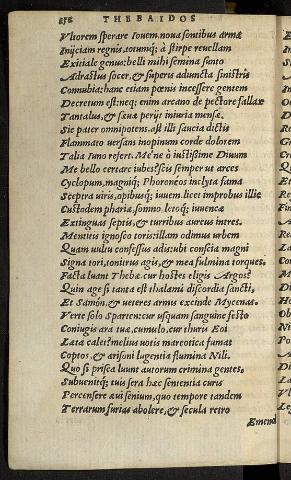 252 THEBAIDOS
Vltorem sperare Iouem. noua sontibus arma
Inijciam regnis, totumq; à stirpe reuellam
Exitiale genus: belli mihi semina sunto
Adrastus socer, & superis adiuncta sinistris
Connubia: hanc etiam pœnis incessere gentem
Decretum est: neq; enim arcano de pectore fallax
Tantalus, & sæuæ perijt iniuria mensæ.
Sic pater omnipotens. ast illi saucia dictis
Flammato uersans inopinum corde dolorem
Talia Iuno refert. Me'ne ô iustissime Diuum
Me bello certare iubes? scis semper ut arces
Cyclopum, magniq; Phoroneos inclyta fama
Sceptra uiris, opibusq; iuuem. licet improbus illic
Custodem phariæ, somno letoq; iuuencæ
Extinguas septis, & turribus aureus intres.
Mentitis ignosco toris: illam odimus urbem
Quam uultu confessus adis: ubi conscia magni
Signa tori, tonitrus agis, & mea fulmina torques.
Facta luant Thebæ. cur hostes eligis Argos?
Quin age si tanta est thalami discordia sancti,
Et Samõn, & ueteres armis excinde Mycenas.
Verte solo Sparten: cur usquam sanguine festo
Coniugis ara tuæ, cumulo. cur thuris Eoi
Læta calet? melius uotis mareotica fumat
Coptos, & ærisoni lugentia flumina Nili.
Quo si prisca luunt autorum crimina gentes,
Subuenitq; tuis sera hæc sententia curis
Percensere æui senium, quo tempore tandem
Terrarum furias abolere, & secula retro
Emend